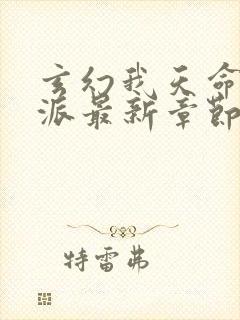 玄幻我天命
派最新章節
特雷弗